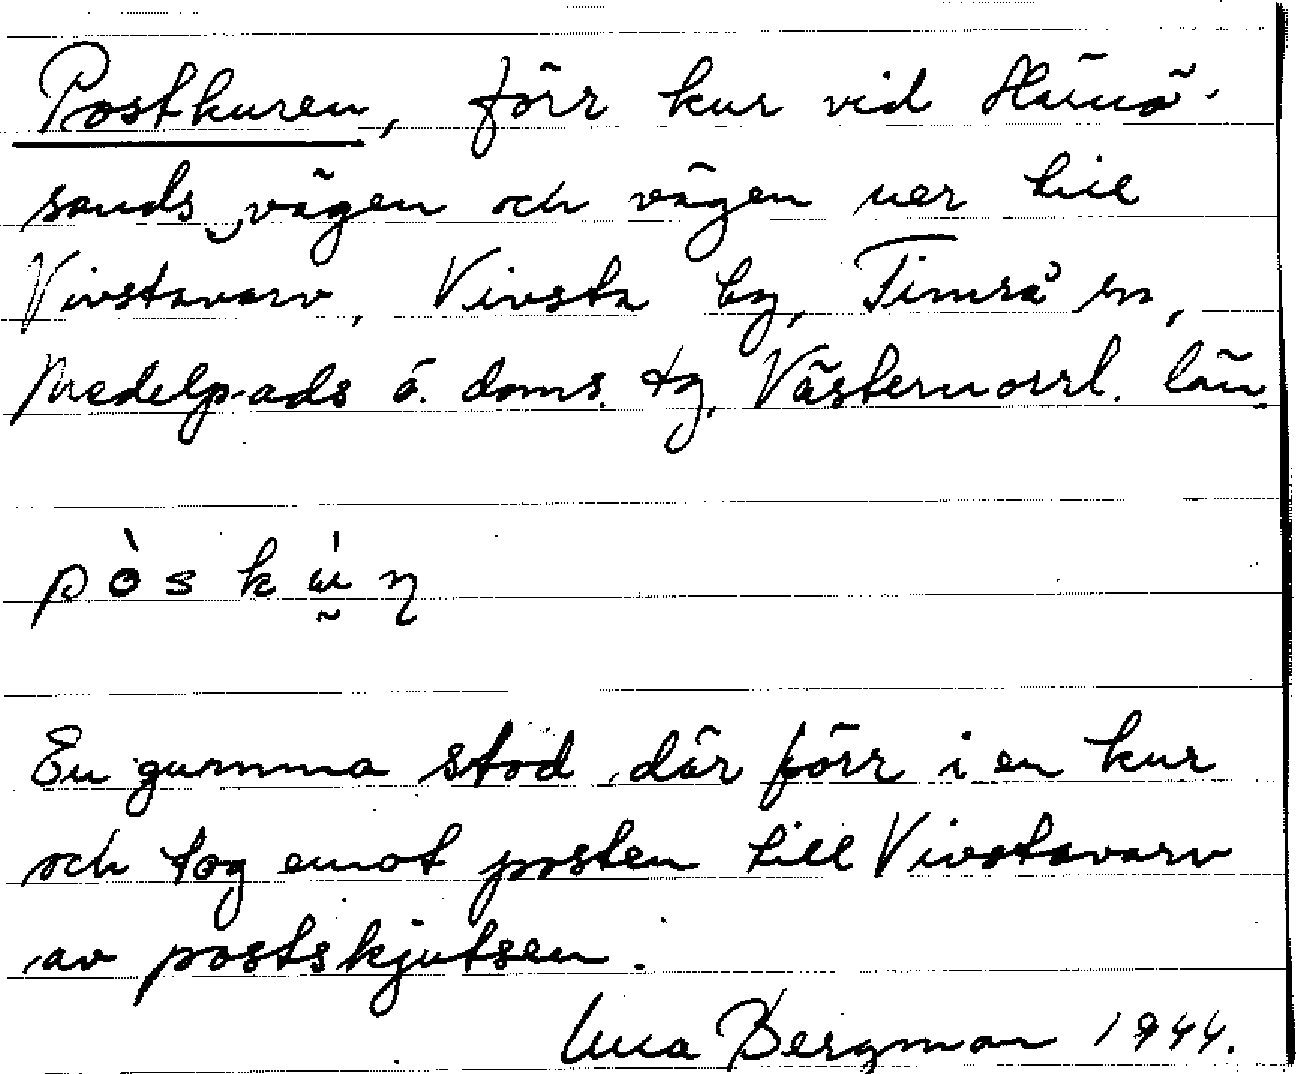 Postkuren, förr kur vid Härnö-
sands vägen och vägen ner till
Vivstavarv, Vivsta by, Timrå sn,
Medelpads ö. doms. tg, Västernorrl. län
En gumma stod där förr i en kur
och tog emot posten till Vivstavarv
av postskjutsen.
Bergman 1944.